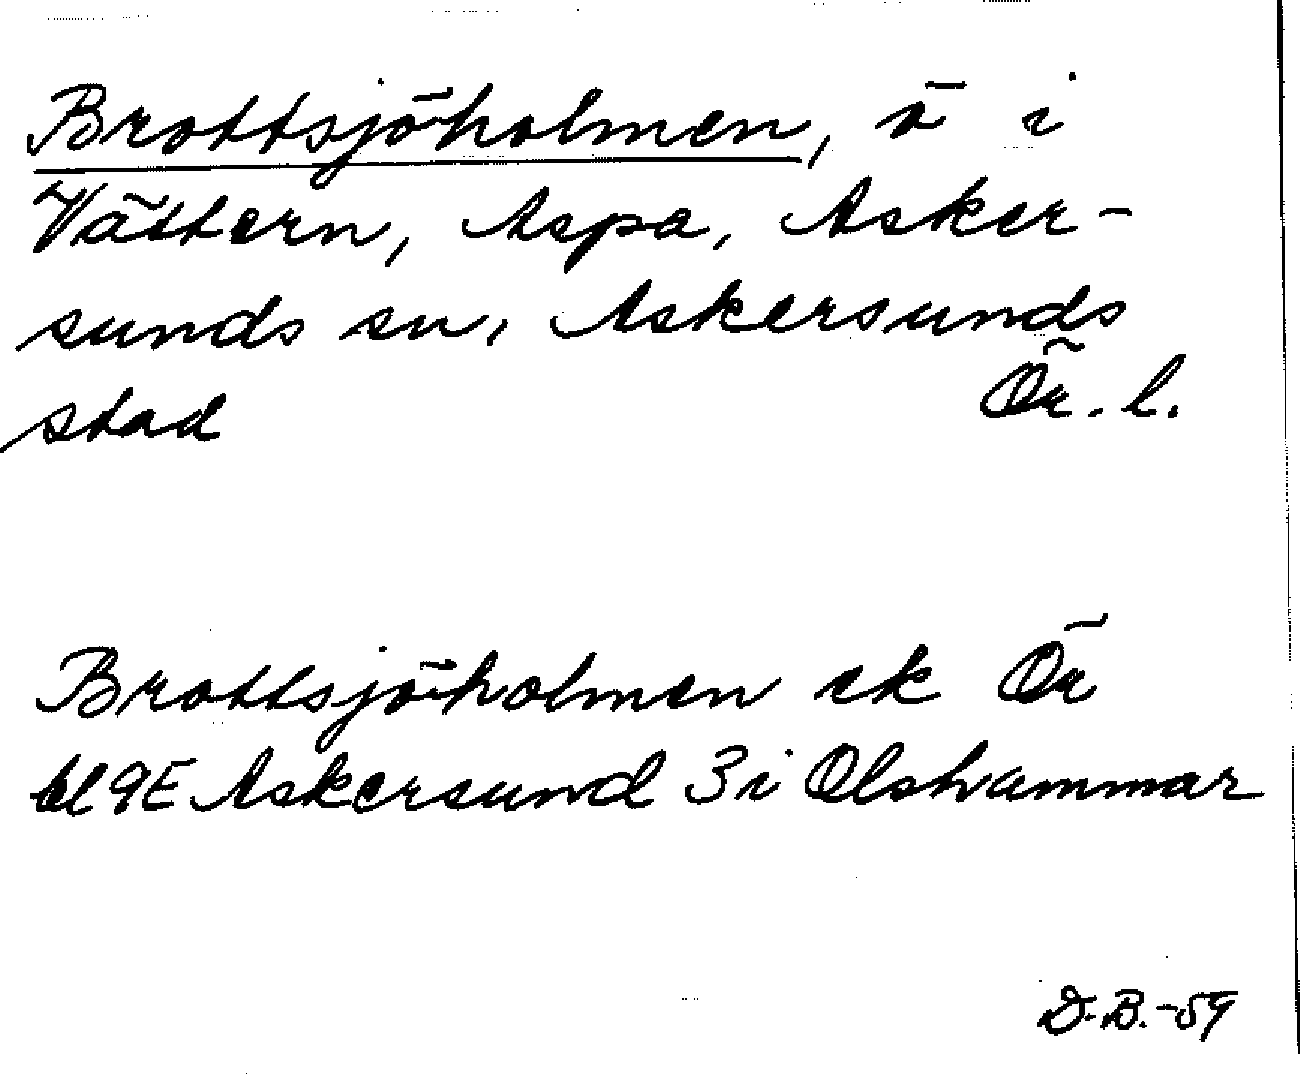 Brottsjöholmen, ö i
Vättern, Aspa, Asker-
sunds sn, Askersunds
stad Ör. l.
Brottsjöholmen ek Ör
bl 9E Askersund 3i Olshammar
D.B.-59